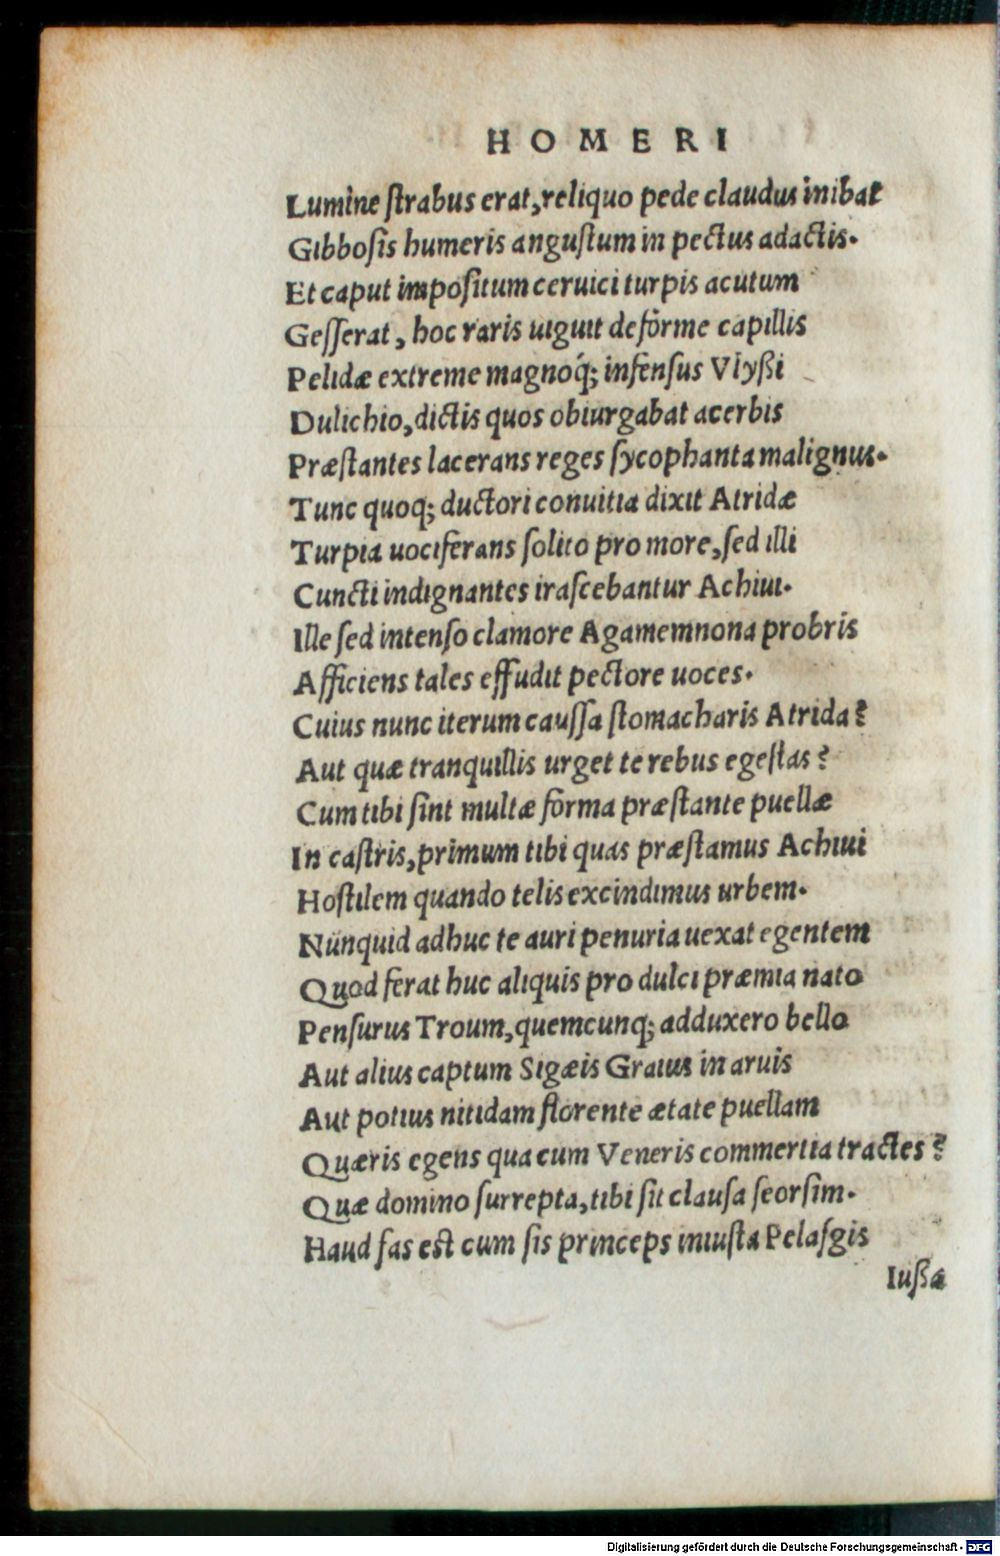 HOMERI
Lumine ſtrabus erat, reliquo pede claudus inibat
Gibboſis humeris anguſtum in pectus adactis.
Et caput impoſitum ceruici turpis acutum
Geſſerat, hoc raris uiguit deforme capillis
Pelidæ extreme magnoq́; infenſus Vlyßi
Dulichio, dictis quos obiurgabat acerbis
Præſtantes lacerans reges ſycophanta malignus.
Tunc quoq; ductori conuitia dixit Atridæ
Turpia uociferans ſolito pro more, ſed illi
Cuncti indignantes iraſcebantur Achiui.
Ille ſed intenſo clamore Agamemnona probris
Afficiens tales effudit pectore uoces.
Cuius nunc iterum cauſſa ſtomacharis Atrida?
Aut quæ tranquillis urget te rebus egeſtas?
Cum tibi ſint multæ forma præſtante puellæ
In caſtris, primum tibi quas præſtamus Achiui
Hoſtilem quando telis excindimus urbem.
Nunquid adhuc te auri penuria uexat egentem
Quod ferat huc aliquis pro dulci præmia nato
Penſurus Troum, quemcunq; adduxero bello
Aut alius captum Sigæis Graius in aruis
Aut potius nitidam florente ætate puellam
Quæris egens qua cum Veneris commertia tractes?
Quæ domino ſurrepta, tibi ſit clauſa ſeorſim.
Haud fas eſt cum ſis princeps iniuſta Pelaſgis
Iußa
Digitalisierung gefördert durch die Deutsche Forschungsgemeinschaft - DFG